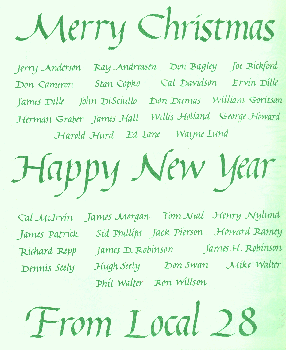 Merry Christmas
Jerry Anderson Ray Andreasen Don Bagley Joe Bickford
Don Cameron Stan Copko Cal Davidson Ervin Dille
James Dille John DiScullo Don Dumas William Garitson
Herman Graber James Hall Willis Holland George Howard
Harold Hurd Ed Lane Wayne Lund
Happy New Year
Cal McIrvin James Morgan Tom Nual Henry Nylund
James Patrick Sid Phillips Jack Pierson Howard Rainey
Richard Repp James D. Robinson James H. Robinson
Dennis Seely Hugh Seely Don Swan Mike Walter
Phil Walter Ken Willson
From Local 28